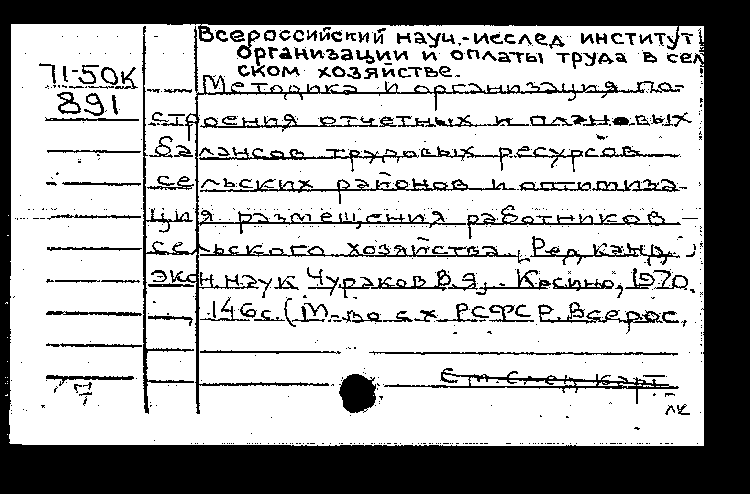 Всероссийский науч.-исслед институт
организации и оплаты труда в сел
ском хозяйстве.
71-50К
891
Методика и организация по-
строения отчетных и плановых
балансов трудовых ресурсов
сельских районов и оптимиза-
ция размещения работников
сельского хозяйства. [Ред. канд.
экон. наук Чураков В.Я.]. Косино, 1970.
146с. (М-во с х РСФСР. Всерос.
См. след. карт
7